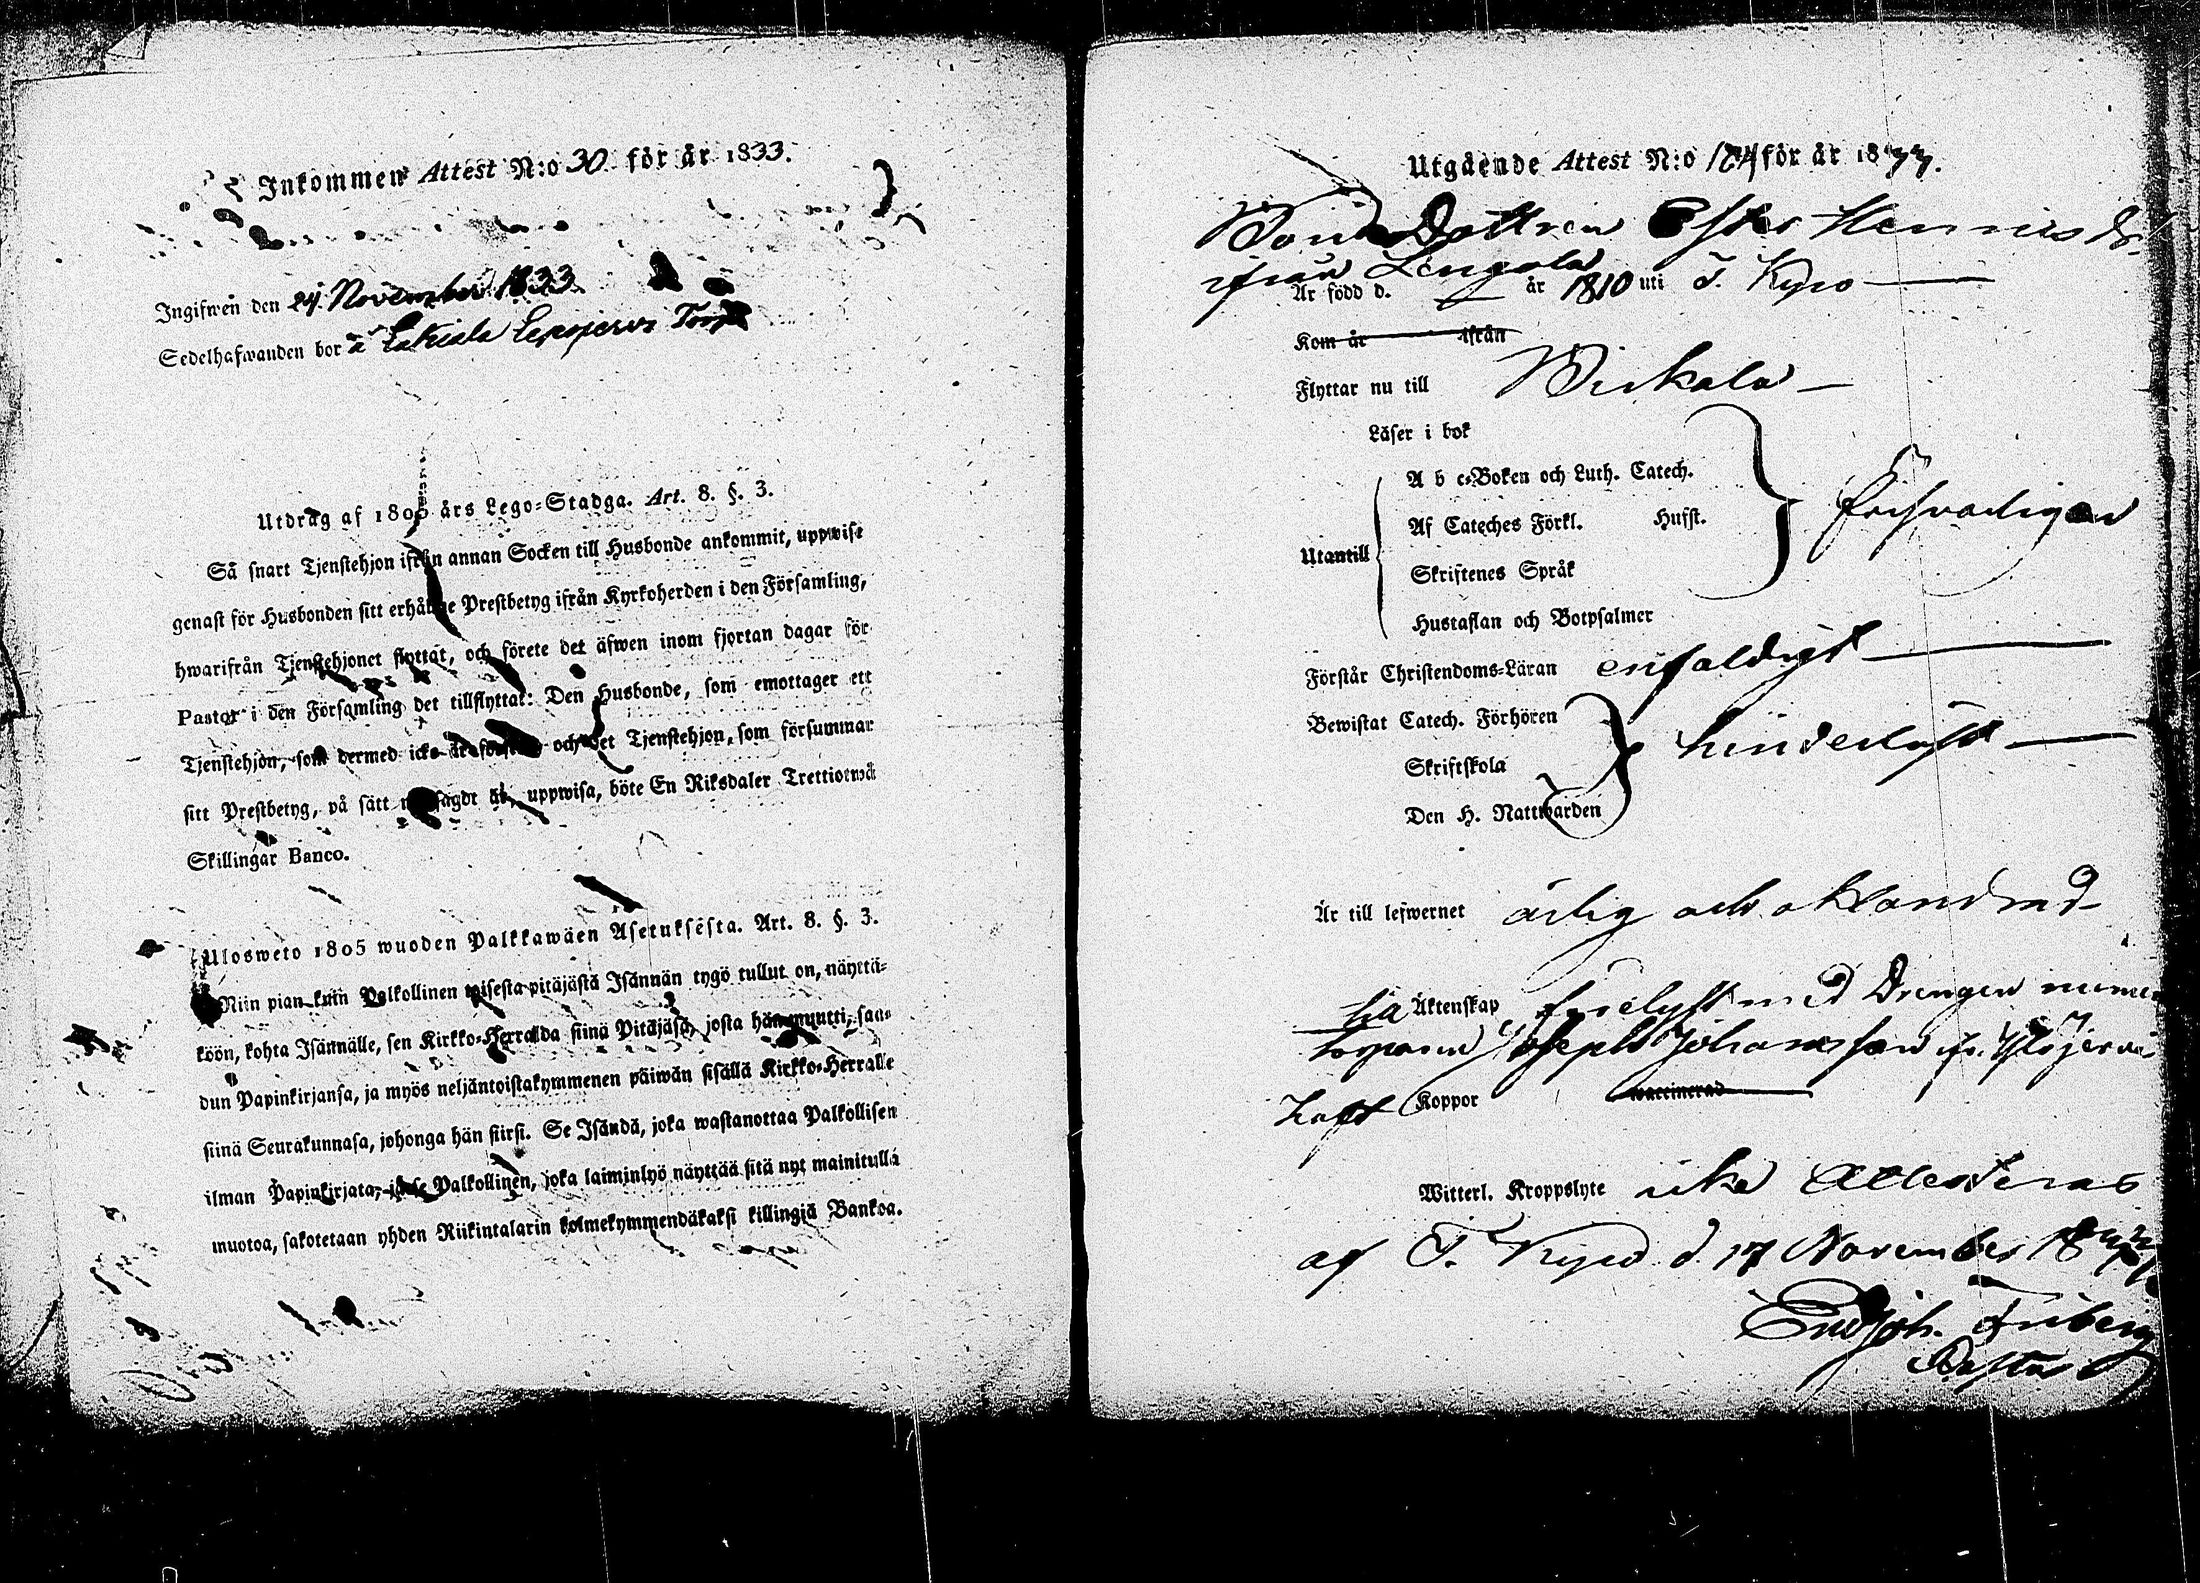 Inkommen Attest N:o 30 för år 1833.
Ingifwen den 24. November 1833
Sedelhafwanden bor å Torp
Utdrag af 1805 års Lego-Stadga. Art. 8. §. 3.
Så snart Tjenstehjon ifrån annan Socken till Husbonde ankommit, uppwise
genast för Husbonden sitt erhållne Prestbetyg ifrån Kyrkoherden i den Församling,
hwarifrån Tjenstehjonet flyttat, och förete det äfwen inom fjortan dagar för
Pastor i den Församling det tillflyttat: Den Husbonde, som emottager ett
Tjenstehjon, som dermed icke är försedt och det Tjenstehjon, som försummar
sitt Prestbetyg, på sätt nu sagdt är, uppwisa, böte En Riksdaler Trettiotwå
Skillingar Banco.
Ulosweto 1805 wuoden Palkkawäen Asetuksesta. Art. 8. §. 3.
Niin pian kuin Palkollinen toisesta pitäjästä Isännän tygö tullut on, näyttä-
köön, kohta Isännälle, sen Kirkko-Herralda siinä Pitäjäsä, josta hän muutti, saa-
dun Papinkirjansa, ja myös neljäntoistakymmenen päiwän sisällä Kirkko-Herralle
siinä Seurakunnasa, johonga hän siirsi. Se Isändä, joka wastanottaa Palkollisen
ilman Papinkirjata, ja se Palkollinen, joka laiminlyö näyttää sitä nyt mainitulla
muotoa, sakotetaan yhden Riikintalarin kolmekymmendäkaksi killingiä Bankoa.
Utgående Attest N:o 184 för år 1833.
Bonde Dottren Ester Hennisdr
ifrån Lengola
Är född d. — år 1810 uti T. Kyro —
Kom år ifrån
Flyttar nu till Birkala —
Läser i bok
A b c-Boken och Luth. Catech.
Af Cateches Förkl. Husst.
Utantill
Skriftenes Språk
försvarligen
Hustaflan och Botpsalmer
Förstår Christendoms-Läran enfaldigt —
Bewistat Catech. Förhören
Skriftskola
hinderlöst —
Den H. Nattwarden
Är till lefwernet ärlig och oklandrad
till Äktenskap, förelyst med Drengen numera
torparen Joseph Johansson ifr. Ylöjervi
Haft Koppor waccinerad
Witterl. Kroppslyte icke Attesteras
af T. Kyro d. 17 November 1833
Joh. Friberg
Pastor